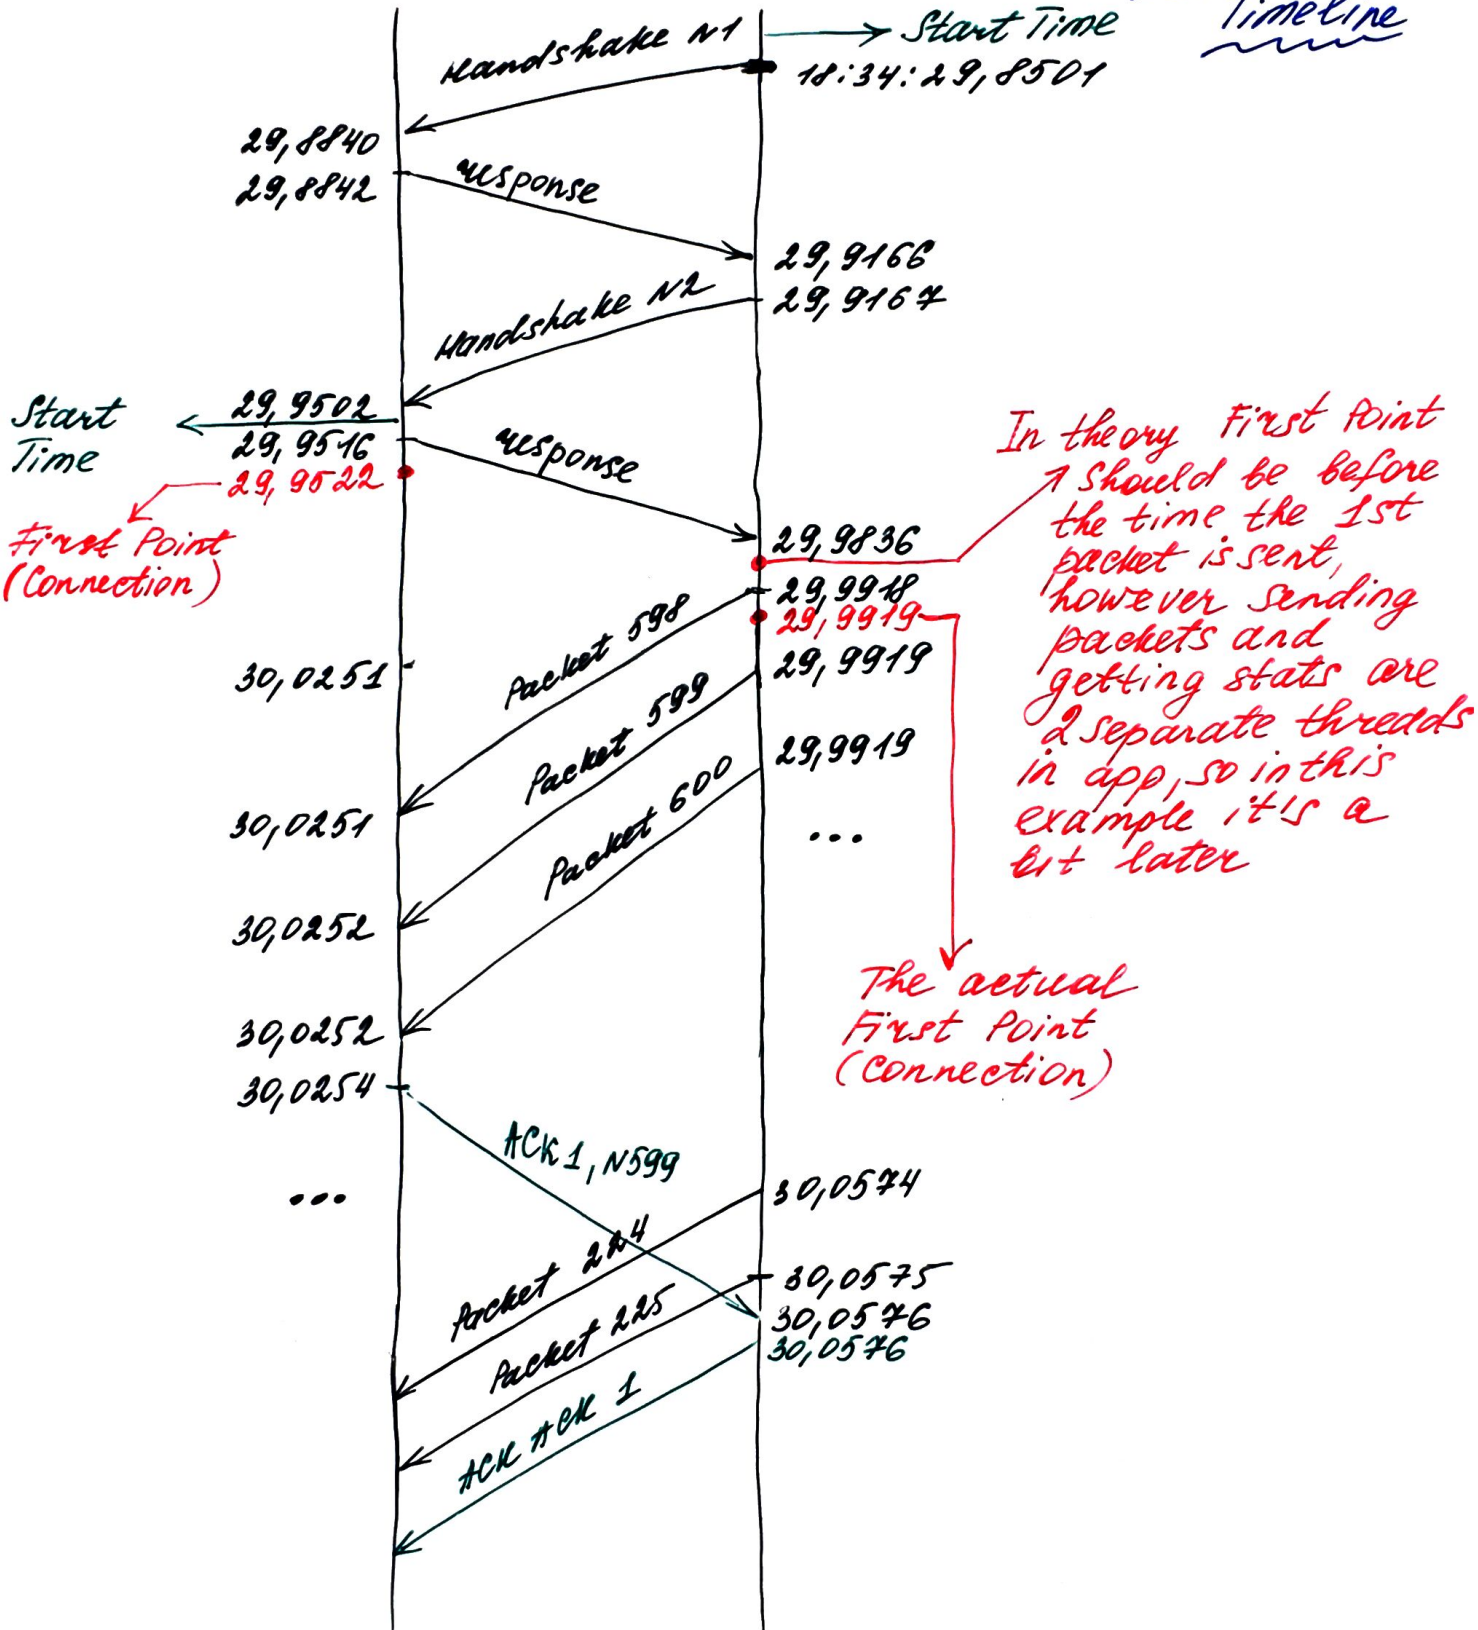 Timeline
Handshake N1
Start Time
18:34:29,8501
29,8840
29,8842
response
29,9166
29,9167
Handshake N2
Start
Time
29,9502
29,9516
29,9522
First Point
(Connection)
response
29,9836
In theory First Point
should be before
the time the 1st
packet is sent,
however sending
packets and
getting stats are
2 separate threads
in app, so in this
example it's a
bit later
29,9918
29,9919
29,9919
29,9919
...
Packet 598
Packet 599
Packet 600
30,0251
30,0251
30,0252
30,0252
30,0254
The actual
First Point
(Connection)
ACK 1, N599
...
30,0574
30,0575
30,0576
30,0576
Packet 224
Packet 225
ACK ACK 1